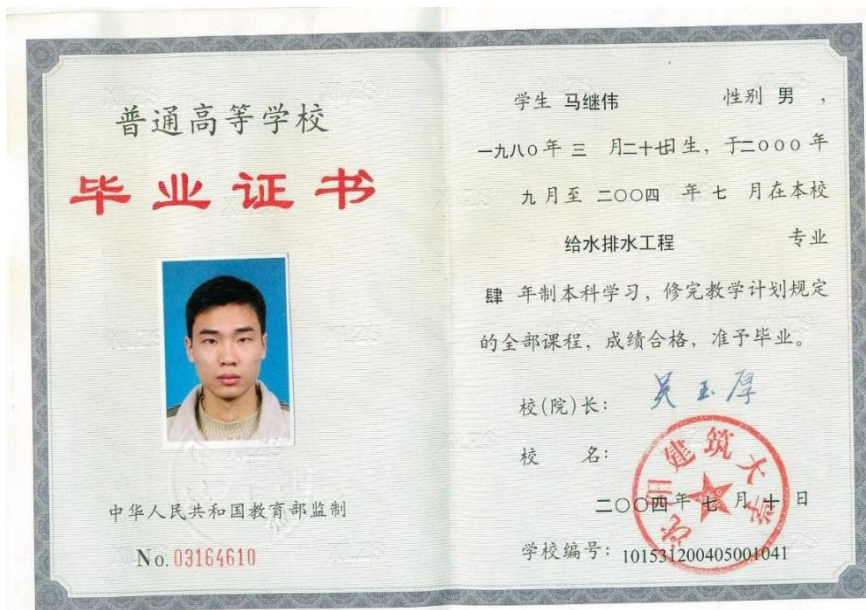 普通高等学校
毕业证书
中华人民共和国教育部监制
No. 03164610
学生 马继伟 性别 男 ,
一九八〇年 三 月二十七日生, 于二〇〇〇年
九月至 二〇〇四 年 七 月在本校
给水排水工程 专业
肆 年制本科学习, 修完教学计划规定
的全部课程, 成绩合格, 准予毕业。
校(院)长: 吴玉厚
校 名:
沈阳建筑大学
二〇〇四年 七 月 十 日
学校编号: 101531200405001041